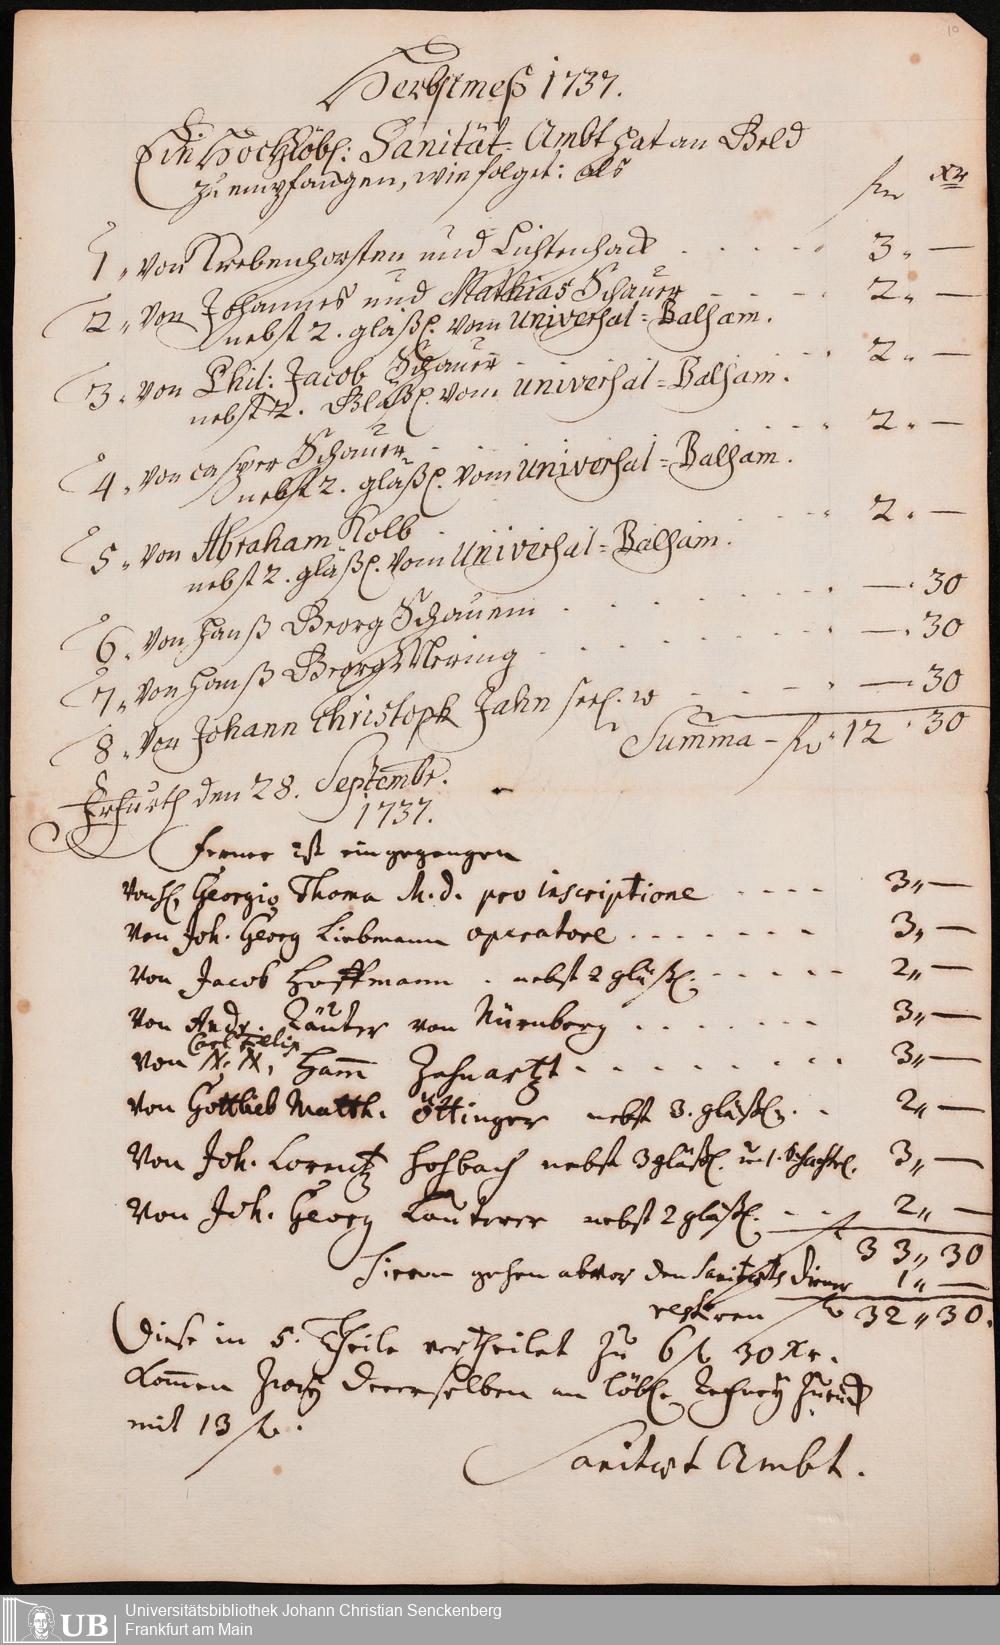 Herbstmeß 1737.
Ein Hochlöbl: Sanität-Ambt hat an Geld
zu empfangen, wie folget: als
fl xr
1, von Krebenhorsten und Lichtenhach 3, —
2, von Johannes und Mathias Schauer 2, —
nebst 2. gläßl. vom Universal=Balsam.
3, von Phil: Jacob Schauer 2, —
nebst 2. Gläßl. vom universal=Balsam.
4, von Casper Schauer 2, —
nebst 2. gläßl. vom universal=Balsam.
5, von Abraham Kolb 2, —
nebst 2. gläßl. vom Universal=Balsam.
6, von Hanß Georg Schauem — 30
7, von Hanß Georg Mering — 30
8, von Johann Christoph Jahn seel. w — 30
Summa - fl. 12 30
Erfurth den 28. Septembr.
1737.
Ferner ist eingegangen
von H. Georgio Thoma M.d. pro inscriptione 3,, —
von Joh. Georg Liebmann operatore 3,, —
von Jacob Hoffmann . nebst 2 gläßl. 2,, —
von Andr. Käuter von Nürnberg 3,, —
Carl Felix
von N. N. Hamm Zahnartzt 3,, —
von Gottlieb Matth. Öttinger nebst 3. gläßl. 2,, —
von Joh. Lorentz Hohbach nebst 3 gläßl. u. 1. Schachtl. 3,, —
von Joh. Georg Lauterer nebst 2 gläßl. 2,, —
33,, 30
hievon gehen ab vor den Sanitäts Diener 1,, —
restiren fl 32,, 30.
Diese in 5. Theile vertheilet zu 6 fl 30 Xr.
kommen zwey derselben an löbl. Rechney zurück
mit 13 fl.
Sanitæt Ambt.
10
UB
Universitätsbibliothek Johann Christian Senckenberg
Frankfurt am Main